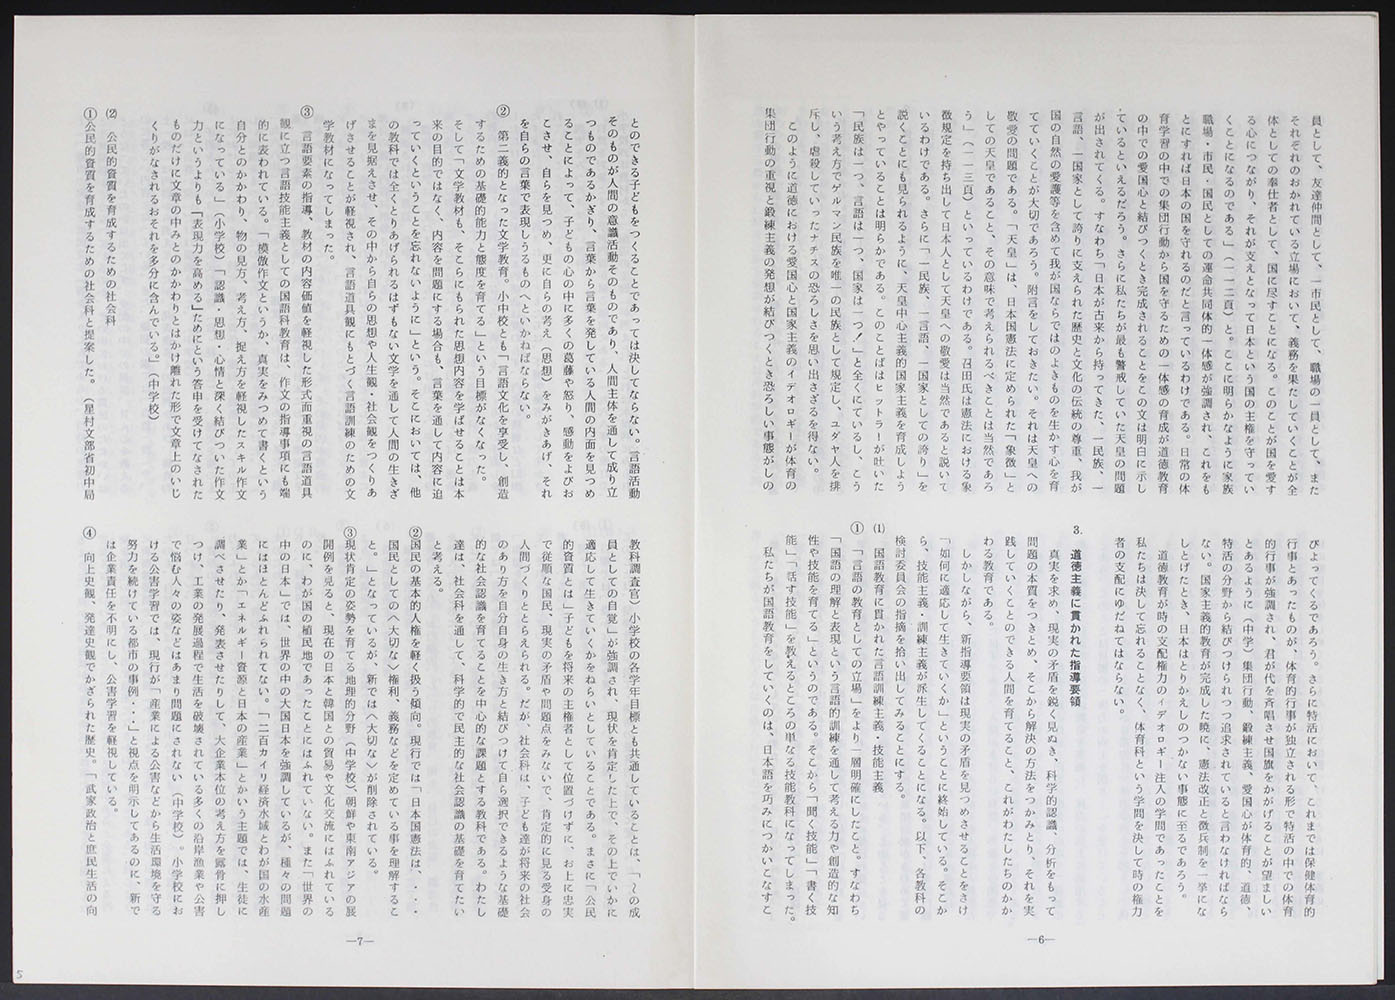 員として、友達仲間として、一市民として、職場の一員として、また
それぞれのおかれている立場において、義務を果たしていくことが全
体としての奉仕者として、国に尽すことになる。このことが国を愛す
る心につながり、それが支えとなって日本という国の主権を守ってい
くことになるのである」(一一二頁)と。ここに明らかなように家族
職場・市民・国民としての運命共同体的一体感が強調され、これをも
とにすれば日本の国を守れるのだと言っているわけである。日常の体
育学習の中での集団行動から国を守るための一体感の育成が道徳教育
の中での愛国心と結びつくとき完成されることをこの文は明白に示し
ているといえるだろう。さらに私たちが最も警戒していた天皇の問題
が出されてくる。すなわち「日本が古来から持ってきた、一民族、一
言語、一国家として誇りに支えられた歴史と文化の伝統の尊重、我が
国の自然の愛護等を含めて我が国ならではのよきものを生かす心を育
てていくことが大切であろう。附言をしておきたい。それは天皇への
敬愛の問題である。「天皇」は、日本国憲法に定められた「象徴」と
しての天皇であること、その意味で考えられるべきことは当然であろ
う」(一一三頁)といっているわけである。召田氏は憲法における象
徴規定を持ち出して日本人として天皇への敬愛は当然であると説いて
いるわけである。さらに「一民族、一言語、一国家としての誇り」を
説くことにも見られるように、天皇中心主義的国家主義を育成しよう
とやっていることは明らかである。このことばはヒットラーが吐いた
「民族は一つ、言語は一つ、国家は一つ!」と全くにているし、こう
いう考え方でゲルマン民族を唯一の民族として規定し、ユダヤ人を排
斥し、虐殺していったナチスの恐ろしさを思い出さざるを得ない。
このように道徳における愛国心と国家主義のイデオロギーが体育の
集団行動の重視と鍛練主義の発想が結びつくとき恐ろしい事態がしの
びよってくるであろう。さらに特活において、これまでは保健体育的
行事とあったものが、体育的行事が独立される形で特活の中での体育
的行事が強調され、君が代を斉唱させ国旗をかかげることが望ましい
とあるように(中学)集団行動、鍛練主義、愛国心が体育的、道徳、
特活の分野から結びつけられつつ追求されていると言わなければなら
ない。国家主義的教育が完成した暁に、憲法改正と徴兵制を一挙にな
しとげたとき、日本はとりかえしのつかない事態に至るであろう。
道徳教育が時の支配権力のイデオロギー注入の学問であったことを
私たちは決して忘れることなく、体育科という学問を決して時の権力
者の支配にゆだねてはならない。
3. 道徳主義に貫かれた指導要領
真実を求め、現実の矛盾を鋭く見ぬき、科学的認識、分析をもって
問題の本質をつきとめ、そこから解決の方法をつかみとり、それを実
践していくことのできる人間を育てること、これがわたしたちのかか
わる教育である。
しかしながら、新指導要領は現実の矛盾を見つめさせることをさけ
「如何に適応して生きていくか」ということに終始している。そこか
ら、技能主義・訓練主義が派生してくることになる。以下、各教科の
検討委員会の指摘を拾い出してみることにする。
(1) 国語教育に貫かれた言語訓練主義・技能主義
① 「言語の教育としての立場」をより一層明確にしたこと。すなわち
「国語の理解と表現という言語的訓練を通して考える力や創造的な知
性や技能を育てる」というのである。そこから「聞く技能」「書く技
能」「話す技能」を教えるところの単なる技能教科になってしまった。
私たちが国語教育をしていくのは、日本語を巧みにつかいこなすこ
—6—
とのできる子どもをつくることであっては決してならない。言語活動
そのものが人間の意識活動そのものであり、人間主体を通して成り立
つものであるかぎり、言葉から言葉を発している人間の内面を見つめ
ることによって、子どもの心の中に多くの葛藤や怒り、感動をよびお
こさせ、自らを見つめ、更に自らの考え(思想)をみがきあげ、それ
を自らの言葉で表現しうるものへといかねばならない。
② 第二義的となった文学教育。小中校とも「言語文化を享受し、創造
するための基礎的能力と態度を育てる」という目標がなくなった。
そして「文学教材も、そこらにもられた思想内容を学ばせることは本
来の目的ではなく、内容を問題にする場合も、言葉を通して内容に迫
っていくということを忘れないように」という。そこにおいては、他
の教科では全くとりあげられるはずもない文学を通して人間の生きざ
まを見据えさせ、その中から自らの思想や人生観・社会観をつくりあ
げさせることが軽視され、言語道具観にもとづく言語訓練のための文
学教材になってしまった。
③ 言語要素の指導、教材の内容価値を軽視した形式面重視の言語道具
観に立つ言語技能主義としての国語科教育は、作文の指導事項にも端
的に表われている。「模倣作文というか、真実をみつめて書くという
自分とのかかわり、物の見方、考え方、捉え方を軽視したスキル作文
になっている」(小学校)「認識・思想・心情と深く結びついた作文
力というよりも「表現力を高める」ためにという答申を受けてなされた
ものだけに文章の中みとのかかわりとはかけ離れた形で文章上のいじ
くりがなされるおそれを多分に含んでいる。」(中学校)
(2) 公民的資質を育成するための社会科
①公民的資質を育成するための社会科と提案した。(星村文部省初中局
教科調査官)小学校の各学年目標とも共通していることは、「〜の成
員としての自覚」が強調され、現状を肯定した上で、その上でいかに
適応して生きていくかをねらいとしていることである。まさに「公民
的資質とは「子どもを将来の主権者として位置づけずに、お上に忠実
で従順な国民、現実の矛盾や問題点をみないで、肯定的に見る受身の
人間づくりをととらえられる。だが、社会科は、子ども達が将来の社会
のあり方を自分自身の生き方と結びつけて自ら選択できるような基礎
的な社会認識を育てることを中心的な課題とする教科である。わたし
達は、社会科を通して、科学的で民主的な社会認識の基礎を育てたい
と考える。
②国民の基本的人権を軽く扱う傾向。現行では「日本国憲法は、・・・
国民としての〈大切な〉権利、義務などを定めている事を理解するこ
と。」となっているが、新では〈大切な〉が削除されている。
③現状肯定の姿勢を育てる地理的分野(中学校)、朝鮮や東南アジアの展
開例を見ると、現在の日本と韓国との貿易や文化交流にはふれている
のに、わが国の植民地であったことにはふれていない。また「世界の
中の日本」では、世界の中の大国日本を強調しているが、種々の問題
にはほとんどふれられてない。「二百カイリ経済水域とわが国の水産
業」とか「エネルギー資源と日本の産業」とかいう主題では、生徒に
調べさせたり、発表させたりして、大企業本位の考え方を露骨に押し
つけ、工業の発展過程で生活を破壊されている多くの沿岸漁業や公害
で悩む人々の姿などはあまり問題にされない(中学校)。小学校にお
ける公害学習では、現行が「産業による公害などから生活環境を守る
努力を続けている都市の事例・・・」と視点を明示してあるのに、新で
は企業責任を不明にし、公害学習を軽視している。
④ 向上史観、発達史観でかざられた歴史。「武家政治と庶民生活の向
—7—
5